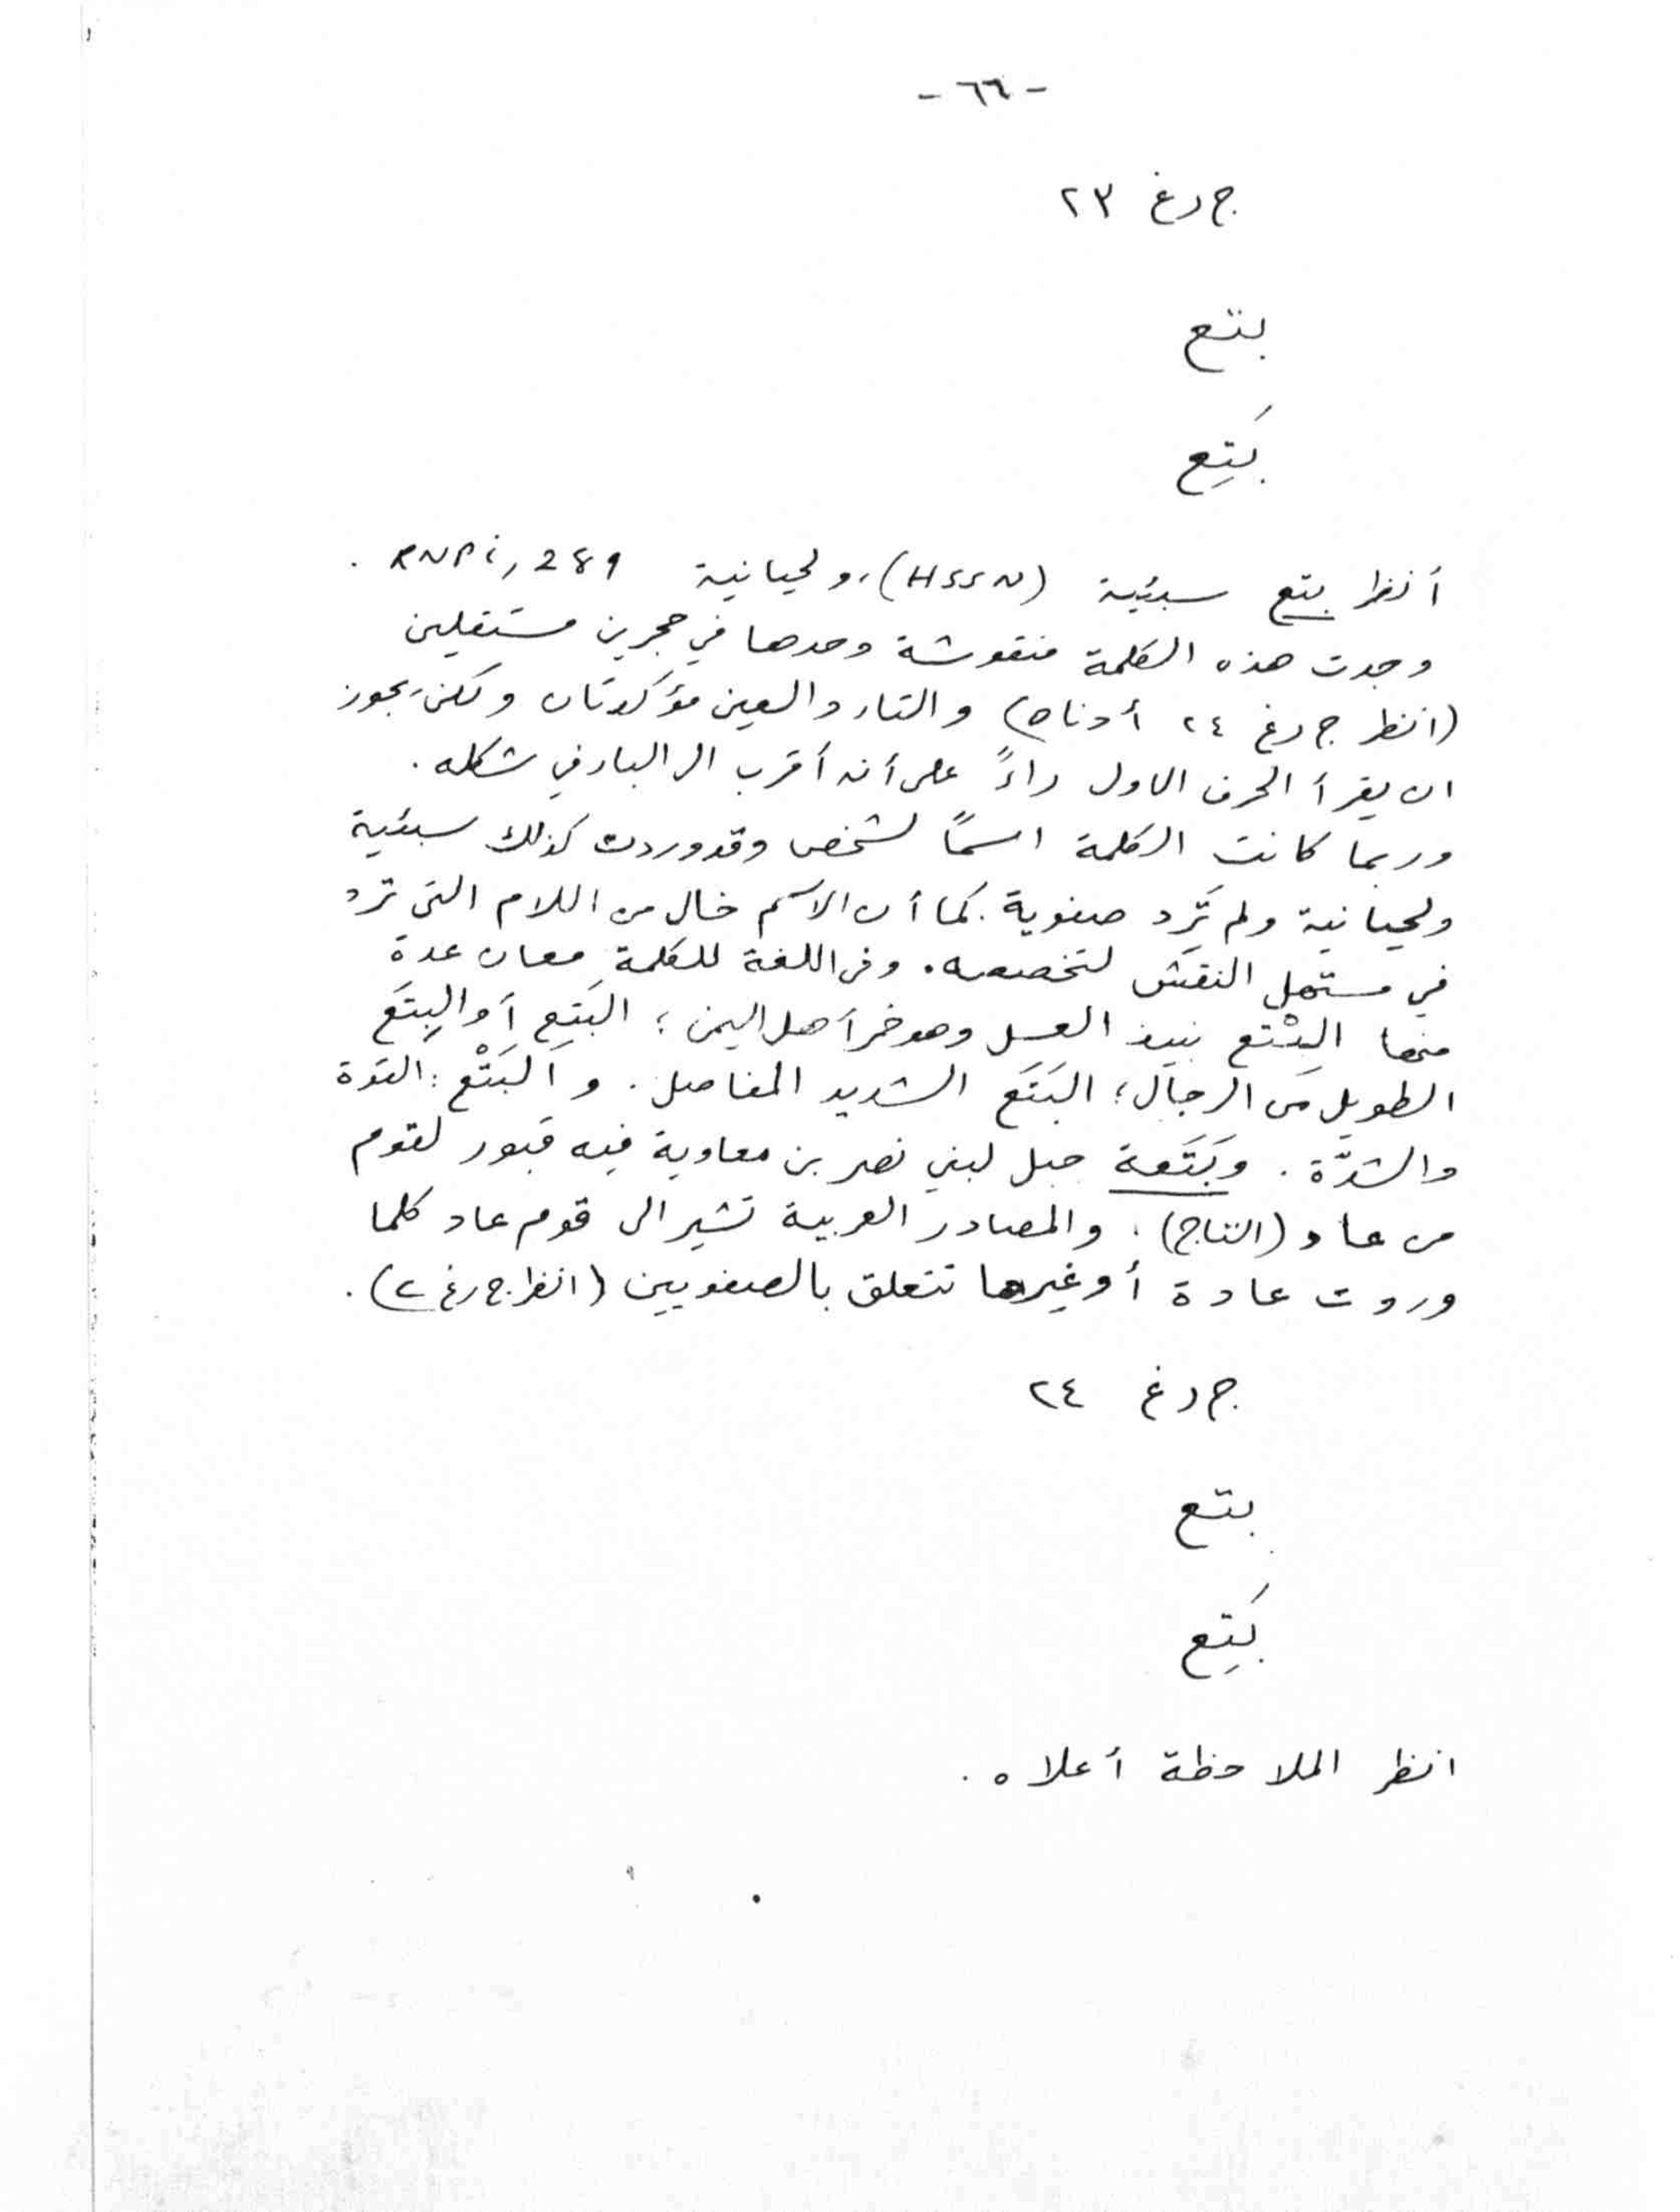 - ٦٦ -
ج رغ ٢٣
بتع
بَتِع
أنظر بتع سبئية (HSSN)، ولحيانية RNPi, 289 .
وجدت هذه الكلمة منقوشة وحدها في حجرين مستقلين
(انظر ج رغ ٢٤ أدناه) والتاء والعين مؤكدتان ولكن يجوز
ان يقرأ الحرف الاول راءً على أنه أقرب الى الباء في شكله .
وربما كانت الكلمة اسمًا لشخص وقد وردت كذلك سبئية
ولحيانية ولم تَرِد صفوية . كما أن الاسم خال من اللام التي ترد
في مستهل النقش لتخصصه . وفي اللغة للكلمة معان عدة
منها البِتْع نبيذ العسل وهو خمر أهل اليمن ؛ البَتِع أو البِتَع
الطويل من الرجال ؛ البَتَع الشديد المفاصل . والبَتْع : القوة
والشدَّة . وبَتَعة جبل لبني نصر بن معاوية فيه قبور لقوم
من عاد (التاج) . والمصادر العربية تشير الى قوم عاد كلما
وردت عادة أو غيرها تتعلق بالصفويين (انظر ج رغ ٢) .
ج رغ ٢٤
بتع
بَتِع
انظر الملاحظة أعلاه .